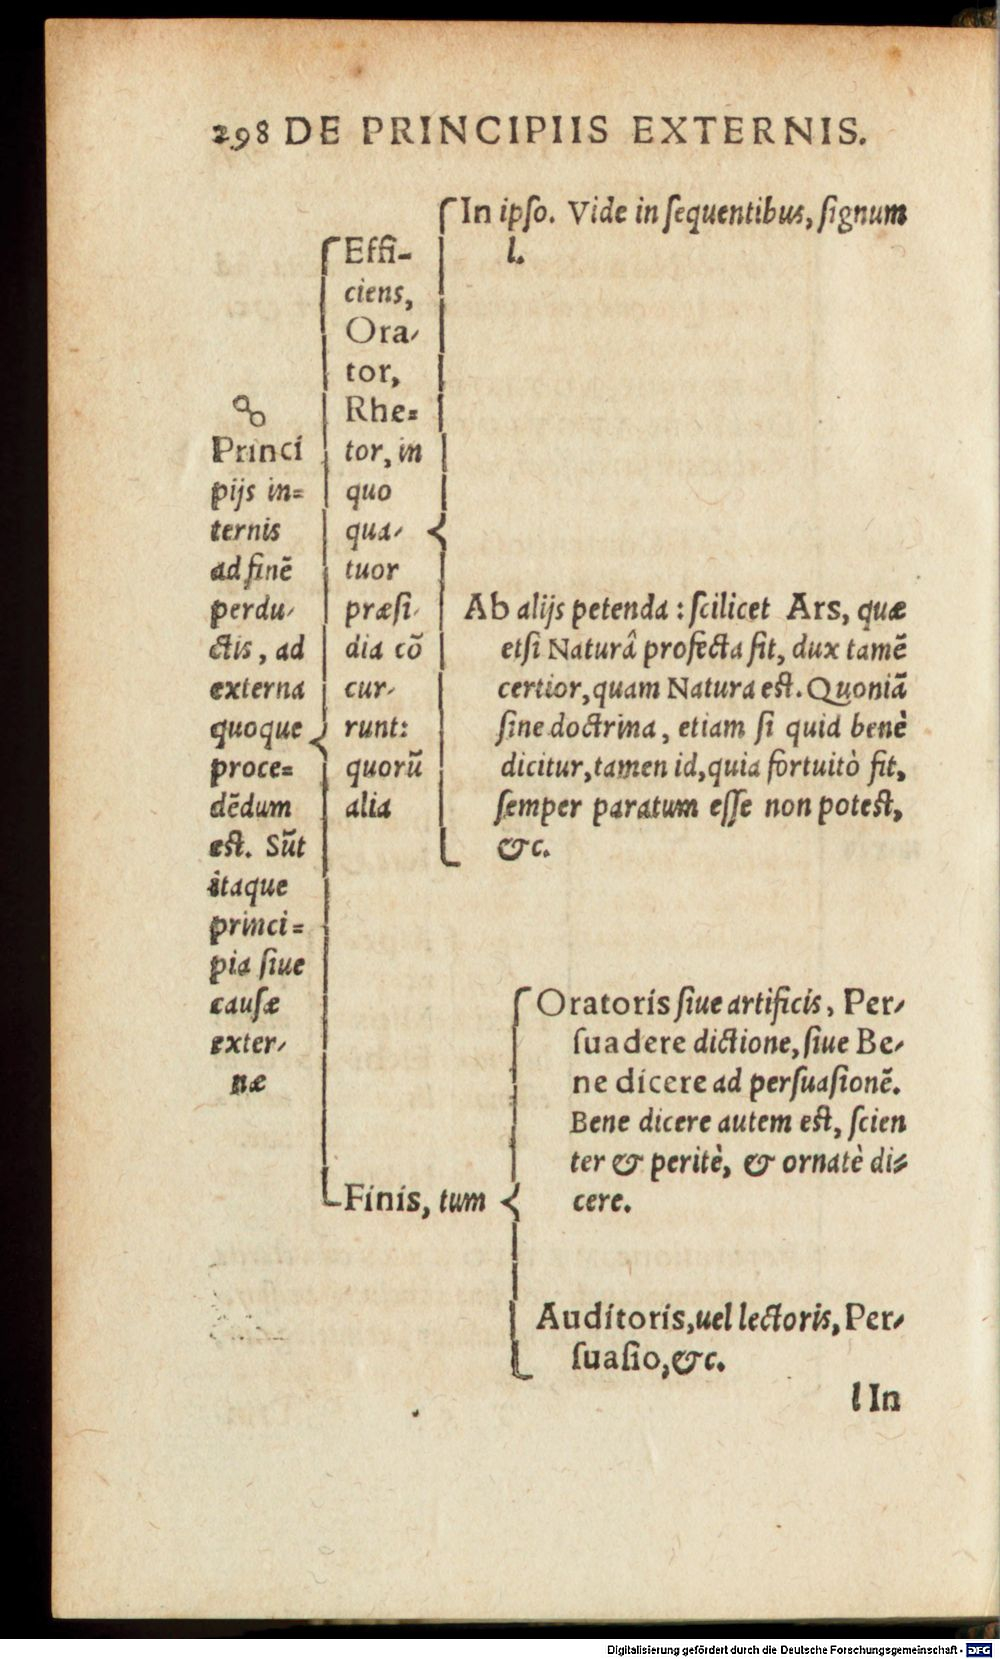 298 DE PRINCIPIIS EXTERNIS.
Princi
pijs in=
ternis
ad finē
perdu-
ctis, ad
externa
quoque
proce=
dēdum
est. Sūt
itaque
princi=
pia ſiue
cauſæ
exter-
næ
Effi-
ciens,
Ora-
tor,
Rhe=
tor, in
quo
qua-
tuor
præſi-
dia cō
cur-
runt:
quorū
alia
In ipſo. Vide in ſequentibus, ſignum
l.
Ab alijs petenda: ſcilicet Ars, quæ
etſi Naturâ profecta ſit, dux tamē
certior, quam Natura est. Quoniā
ſine doctrina, etiam ſi quid benè
dicitur, tamen id, quia fortuitò fit,
ſemper paratum eſſe non potest,
&c.
Finis, tum
Oratoris ſiue artificis, Per-
ſuadere dictione, ſiue Be-
ne dicere ad perſuaſionē.
Bene dicere autem est, ſcien
ter & peritè, & ornatè di=
cere.
Auditoris, uel lectoris, Per-
ſuaſio, &c.
l In
Digitalisierung gefördert durch die Deutsche Forschungsgemeinschaft - DFG